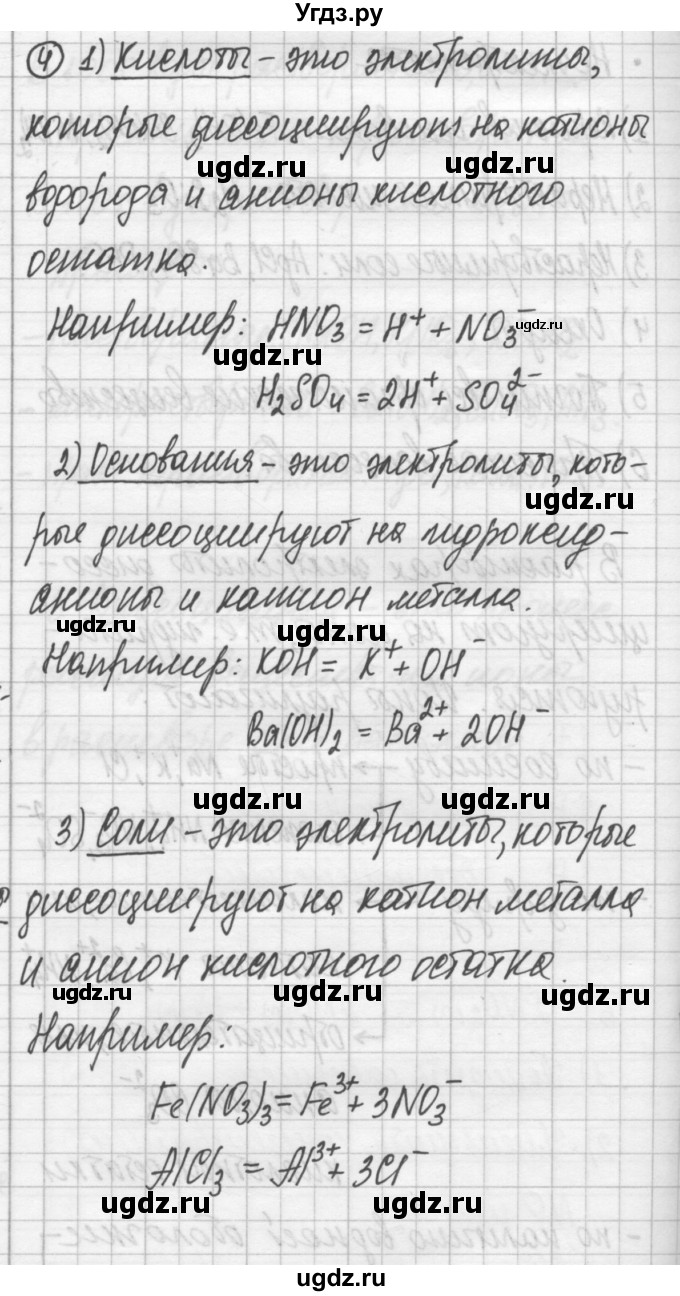 Угдз.ру
④ 1) Кислоты – это электролиты,
которые диссоциируют на катионы
ugdz.ru ugdz.ru
водорода и анионы кислотного
остатка.
Например: HNO₃ = H⁺ + NO₃⁻
ugdz.ru
ugdz.ru
H₂SO₄ = 2H⁺ + SO₄²⁻
2) Основания – это электролиты, кото-
ugdz.ru
рые диссоциируют на гидроксид-
анионы и катион металла.
ugdz.ru ugdz.ru
Например: KOH = K⁺ + OH⁻
Ba(OH)₂ = Ba²⁺ + 2OH⁻
ugdz.ru ugdz.ru
3) Соли – это электролиты, которые
диссоциируют на катион металла
и анион кислотного остатка.
ugdz.ru ugdz.ru ugdz.ru
Например:
Fe(NO₃)₃ = Fe³⁺ + 3NO₃⁻
AlCl₃ = Al³⁺ + 3Cl⁻
ugdz.ru ugdz.ru
ugdz.ru